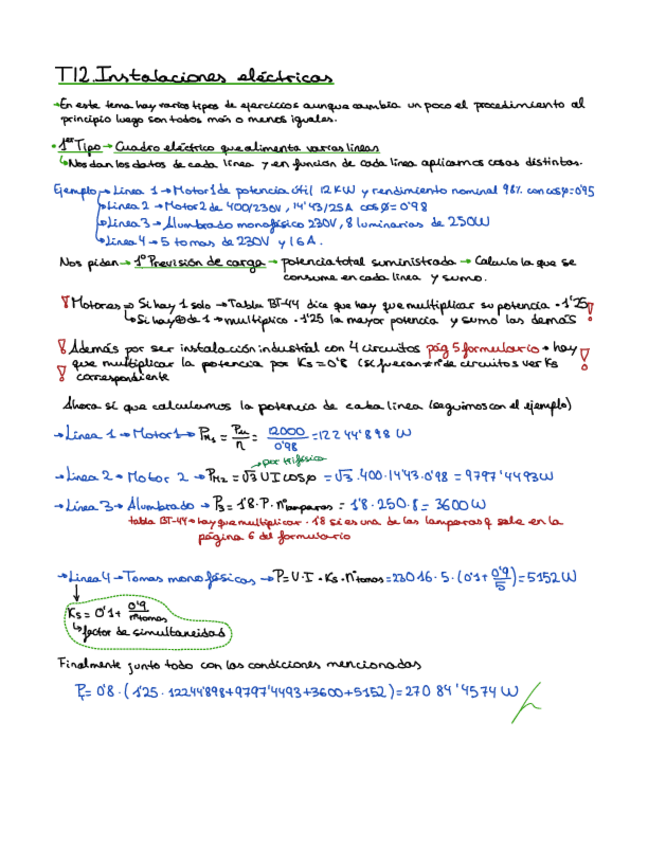 T12. Instalaciones eléctricas
→ En este tema hay varios tipos de ejercicios aunque cambia un poco el procedimiento al
principio luego son todos más o menos iguales.
• 1er Tipo → Cuadro eléctrico que alimenta varias líneas
↳ Nos dan los datos de cada línea y en función de cada línea aplicamos cosas distintas.
Ejemplo → Línea 1 → Motor 1 de potencia útil 12 KW y rendimiento nominal 98% con cosφ=0'95
↳ Línea 2 → Motor 2 de 400/230V, 14'43/25A cosφ=0'98
↳ Línea 3 → Alumbrado monofásico 230V, 8 luminarias de 250W
↳ Línea 4 → 5 tomas de 230V y 16A.
Nos piden → 1º Previsión de carga → potencia total suministrada → Calculo la que se
consume en cada línea y sumo.
! Motores ⇒ Si hay 1 solo → Tabla BT-44 dice que hay que multiplicar su potencia · 1'25 !
↳ Si hay ⊕ de 1 → multiplico · 1'25 la mayor potencia y sumo las demás
! Además por ser instalación industrial con 4 circuitos pág 5 formulario → hay !
! que multiplicar la potencia por Ks = 0'8 (si fueran ≠ nº de circuitos ver Ks
correspondiente
Ahora sí que calculamos la potencia de cada línea (seguimos con el ejemplo)
→ Línea 1 → Motor 1 → PM1 = Pu/η = 12000/0'98 = 12244'898 W
→ por trifásico
→ Línea 2 → Motor 2 → PM2 = √3 U I cosφ = √3 · 400 · 14'43 · 0'98 = 9797'4493 W
→ Línea 3 → Alumbrado → P3 = 1'8 · P · nº lamparas = 1'8 · 250 · 8 = 3600 W
tabla BT-44 → hay que multiplicar · 1'8 si es una de las lamparas q sale en la
página 6 del formulario
→ Línea 4 → Tomas monofásicas → P = U · I · Ks · nº tomas = 230 · 16 · 5 · (0'1 + 0'9/5) = 5152 W
Ks = 0'1 + 0'9/nº tomas
↳ factor de simultaneidad
Finalmente junto todo con las condiciones mencionadas
Pt = 0'8 · (1'25 · 12244'898 + 9797'4493 + 3600 + 5152) = 27084'4574 W